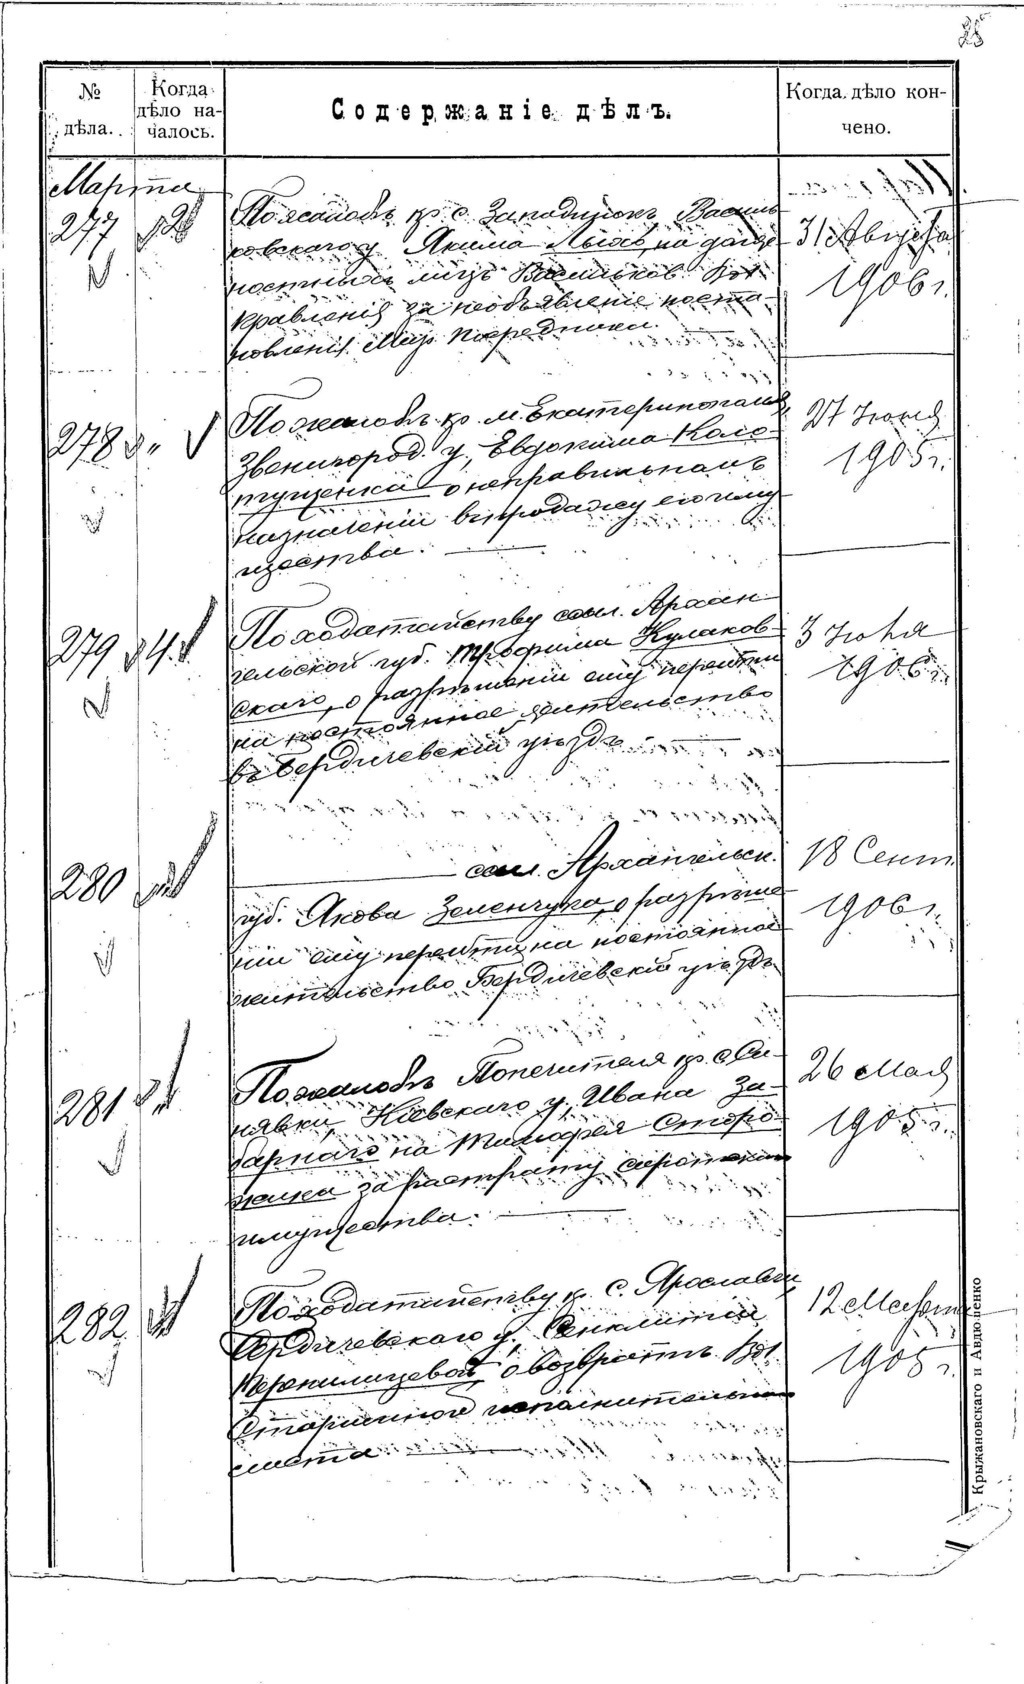 25
№ дѣла.
Когда дѣло началось.
Содержаніе дѣлъ.
Когда дѣло кончено.
Марта
277
2
По жалобѣ кр. с. Западинокъ Василь-
ковскаго у Якима на долж-
ностныхъ лицъ Васильков. Вол.
Правленія за необъявленіе поста-
новленія Мир. Посредника.
31 Августа
1906 г.
278
"
По жалобѣ кр. м. Екатеринополя,
Звенигород. у, Евдокима Коло-
тущенка о неправильномъ
назначеніи въ продажу его иму-
щества.
27 Іюня
1905 г.
279
4.
По ходатайству ссыл. Архан-
гельской губ. Трофима Кулаков-
скаго, о разрѣшеніи ему перейти
на постоянное жительство
въ Бердичевскій уѣздъ
3 Іюля
1906 г.
280
ссыл. Архангельск.
губ. Якова Зеленчука, о разрѣше-
ніи ему перейти на постоянное
жительство Бердичевскій уѣздъ
18 Сент.
1906 г.
281
По жалобѣ Попечителя кр. с. Си-
нявки, Кіевскаго у, Ивана За-
барнаго на Тимофея Сторо-
жика за растрату сиротскаго
имущества.
26 Мая
1905 г.
282
По ходатайству кр. с. Ярославки
Бердичевскаго у, Сенклитіи
о возвратѣ Вол.
Старшиной исполнительнаго
листа
12 Марта
1905 г.
Крыжановскаго и Авдюшенко